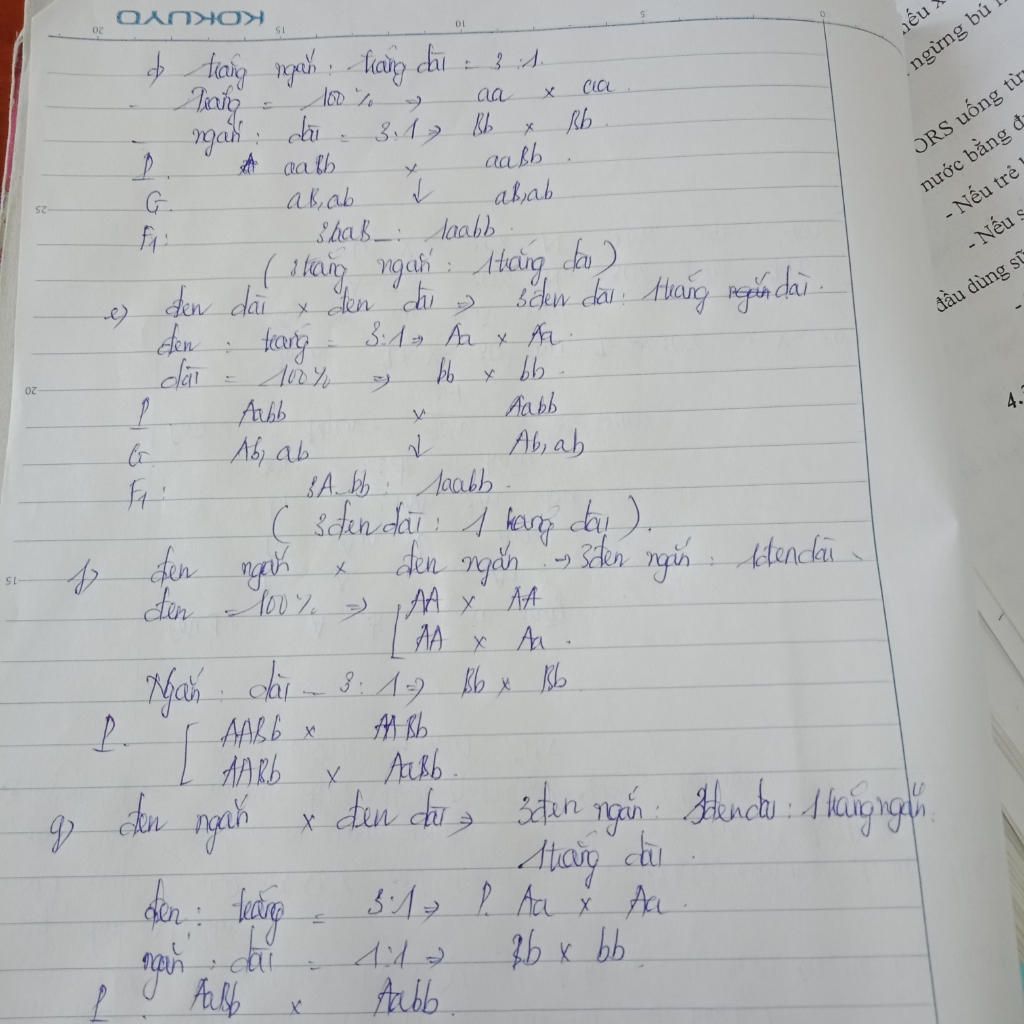 KOKUYO
20 15 10 5 0
d) trắng ngắn : trắng dài = 3 : 1.
- Trắng = 100 % => aa x aa.
- ngắn : dài = 3:1 => Bb x Bb.
P. aaBb x aaBb.
G. aB, ab ↓ aB, ab
25
F1: 3aaB_ : 1aabb.
( 3trắng ngắn : 1trắng dài )
e) đen dài x đen dài => 3đen dài : 1trắng ngắn dài.
đen : trắng = 3:1 => Aa x Aa.
dài = 100% => bb x bb.
20
P. Aabb x Aabb
G. Ab, ab ↓ Ab, ab
F1: 3A_bb : 1aabb.
( 3đen dài : 1 trắng dài ).
f) đen ngắn x đen ngắn -> 3đen ngắn : 1đen dài.
15
đen = 100% => [ AA x AA
AA x Aa.
Ngắn : dài = 3:1 => Bb x Bb
P. [ AABb x AABb
AABb x AaBb.
g) đen ngắn x đen dài => 3đen ngắn : 3đen dài : 1trắng ngắn
1trắng dài.
đen : trắng = 3:1 => P. Aa x Aa.
ngắn : dài = 1:1 => Bb x bb
P. AaBb x Aabb.
nếu x
ngừng bú
ORS uống từn
nước bằng đ
- Nếu trẻ
- Nếu s
đầu dùng sữ
-
4.